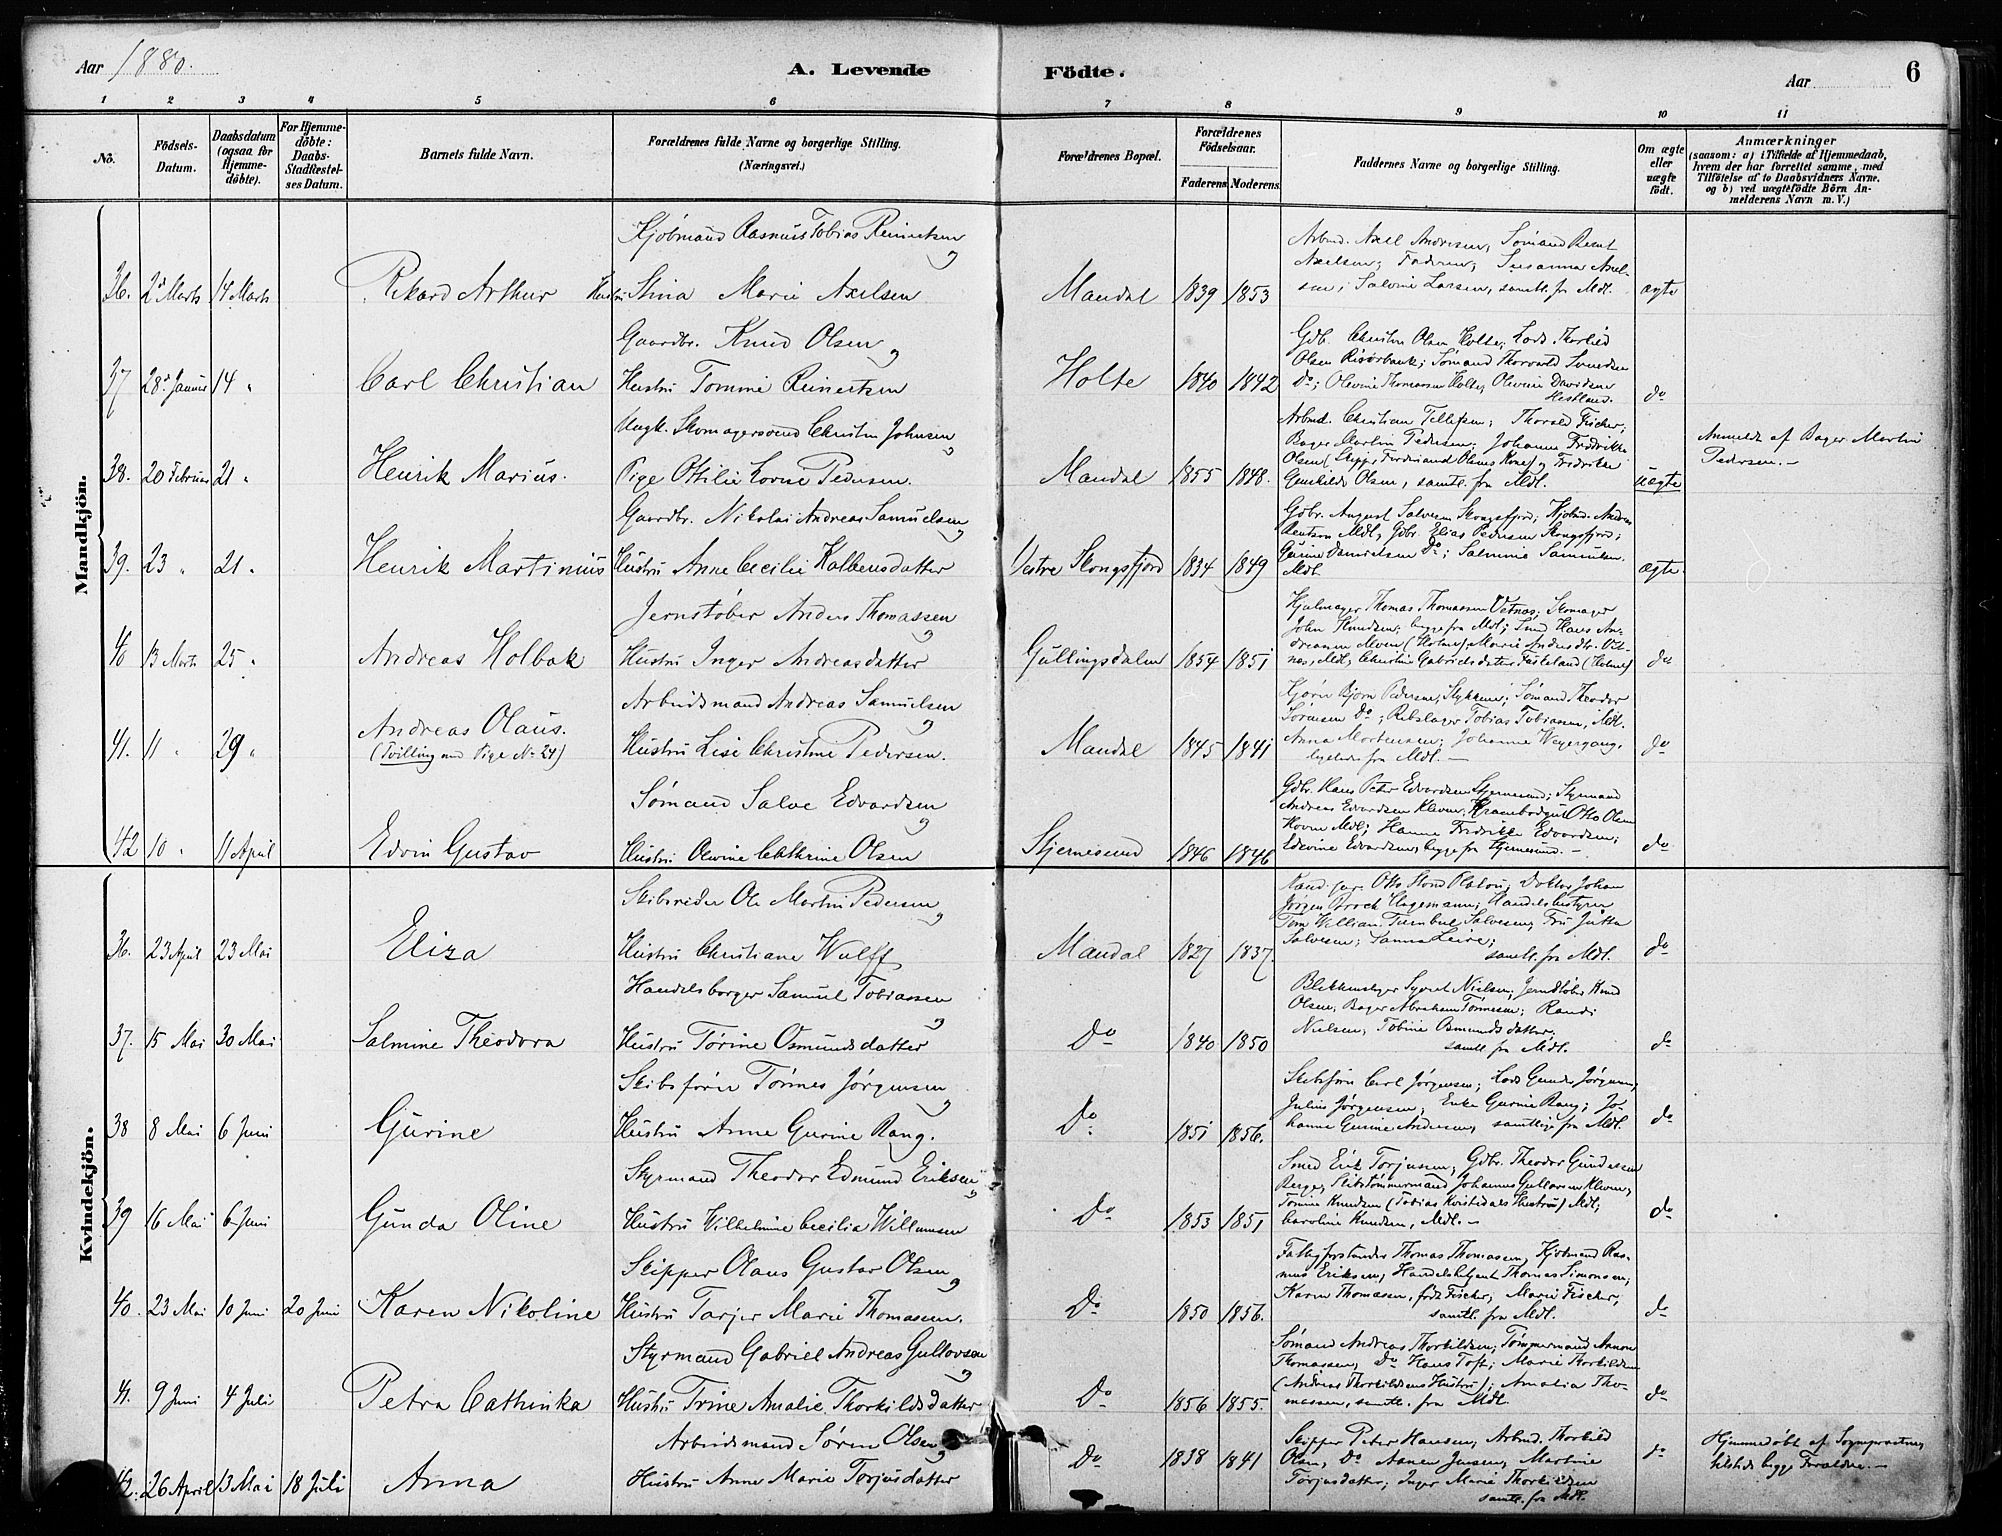 Aar 1880.
A. Levende Fødte.
Aar
6
1 2 3 4 5 6 7 8 9 10 11
No.
Fødsels-
Datum.
Daabsdatum
(ogsaa for
Hjemme-
døbte).
For Hjemme-
døbte:
Daabs-
Stadfæstel-
ses Datum.
Barnets fulde Navn.
Forældrenes fulde Navne og borgerlige Stilling.
(Næringsvei.)
Forældrenes Bopæl.
Forældrenes
Fødselsaar.
Faderens. Moderens.
Faddernes Navne og borgerlige Stilling.
Om ægte
eller
uægte
født.
Anmærkninger
(saasom: a) i Tilfælde af Hjemmedaab,
hvem der har forrettet samme, med
Tilføielse af to Daabsvidners Navne.
og b) ved uægtefødte Børn An-
melderens Navn m. V.)
Mandkjön.
Kjøbmand Rasmus Tobias Reinertsen og
36. 2 Marts 14 Marts Rikard Arthur Hustru Stina Marie Axelsen Mandal 1839 1853 ægte
Arbmd. Axel Andresen, Sømand Bernt
Axelsen; Faderen; Susanna Axel-
sen; Salvine Larsen, samtl. fra Mdl.
Gaardbr. Knud Olsen og
37 28 Januar 14 " Carl Christian Hustru Tomine Reinertsen Holte 1840 1842 do
Gdb. Christen Olsen Holte; Lods Thorlied
Olsen Risørbank; Sømand Thorvald Svendsen
Do; Olevine Thomassen Holte, Olevine Davidsen
Hesland.
Ungk. Skomagersvend Christen Johnsen og
38. 20 Februar 21 " Henrik Marius. Pige Otilie Lovise Pedersen. Mandal 1855 1848. uægte
Arbmd. Christian Tellefsen; Thorvald Fischer;
Bager Martin Pedersen; Johanne Fredrikke
Olsen (Skipp. Ferdinand Olsens Kone) og Fredrikke
Gunhilds Olsen, samtl. fra Mdl.
Anmeldt af Bager Martin
Pedersen. -
Gaardbr. Nikolai Andreas Samuelsen og
39. 23 " 21 " Henrik Martinius Hustru Anne Cecilie Kolbensdatter Vestre Skongsfjord 1834 1849 ægte.
Gdbr. August Salvesen Skongsfjord; Kjøbmd. Anders
Mdl, Gdbr. Elias Pedersen Skongsfjord;
Gurine Danielsen Do; Salmine Samuelsen
Mdl.
Jernstøber Anders Thomassen og
40 13 Marts 25 " Andreas Holbak Hustru Inger Andreasdatter Gullingsdalen 1854 1851 do
Hjulmager Thomas Thomassen Vetnas; Skomager
John Knudsen, begge fra Mdl; Hans An-
dreassen (Holme); Marie Andersdtr. Vet-
nas, Mdl, Christine Gabrielsdatter (Holme)
Arbeidsmand Andreas Samuelsen og
41. 11 " 29 " Andreas Olaus. Hustru Lise Christine Pedersen. Mandal 1845 1841 do
(Tvilling med Pige No 24)
Bjørn Pedersen, Sømand Theodor
Sørensen Do; Rebslager Tobias Tobiassen, Mdl.
Anna Mortensen; Johanne Weyergang,
fra Mdl. -
Sømand Salve Edvardsen og
42 10 " 11 April Edvin Gustav Hustru Olevine Cathrine Olsen Stjernesund 1846 1846 do
Gdbr. Hans Peter Edvardsen Stjernesund; Styrmand
Andreas Edvardsen Kleven; Otto Olsen
Mdl; Hanne Fredrikke Edvardsen;
Edevine Edvardsen, begge fra Stjernesund. -
Kvindekjön.
Skibsreder Ole Martin Pedersen og
36. 23 April 23 Mai Eliza Hustru Christiane Wulff Mandal 1827 1837 do
Kand. jur. Otto Platou; Doktor Johan
Jørgen Broch Hagemann; Handelsbestyrer
Tom William Turnbul Salvesen, Fru Jutta
Salvesen; Sanna Leire;
samtl. fra Mdl.
Handelsborger Samuel Tobiassen og
37. 15 Mai 30 Mai Salmine Theodora Hustru Tørine Osmundsdatter Do 1840 1850 do
Blikkenslager Syvert Nielsen, Jernstøber Knud
Olsen, Bager Abraham Tønnesen; Randi
Nielsen, Tobine Osmundsdatter;
samtl. fra Mdl.
Skibsfører Tønnes Jørgensen og
38 8 Mai 6 Juni Gurine Hustru Anne Gurine Rang. Do. 1851 1856. do
Skibsfører Carl Jørgensen; Lods Gunder Jørgensen,
Julius Jørgensen; Enke Gurine Rang; Jo-
hanne Gurine Andersen, samtlige fra Mdl.
Styrmand Theodor Edmund Eriksen og
39 16 Mai 6 Juni Gunda Oline Hustru Wilhelmine Cecilia Willumsen Do 1853 1851 do
Smed Erik Torjusen, Gdbr. Theodor Gundersen
Berge, Skibstømmermand Johannes Gullovsen Kleven,
Tomine Knudsen (Tobias Hustru) Mdl;
Caroline Knudsen, Mdl. -
Skipper Olaus Gustav Olsen og
40. 23 Mai 10 Juni 20 Juni Karen Nikoline Hustru Tarjer Marie Thomassen. Do 1850 1856. do
Fattigforstander Thomas Thomassen, Kjøbmand Ras-
mus Eriksen, Handelsbetjent Thomas Simonsen;
Karen Thomassen, født Fischer, Marie Fischer,
samtl. fra Mdl.
Styrmand Gabriel Andreas Gullovsen og
41. 9 Juni 4 Juli Petra Cathinka Hustru Trine Amalie Thorkildsdatter Do 1856 1855. do
Sømand Andreas Thorkildsen; Tømmermand Aanon
Thomassen, Do Hans Toft; Marie Thorkildsen
(Andreas Thorkildsens Hustru); Amalia Tho-
massen, samtl. fra Mdl.
Arbeidsmand Søren Olsen og
42. 26 April 13 Mai 18 Juli Anna Hustru Anne Marie Torjusdatter Do 1838 1841 do
Skipper Peter Hansen, Arbmd. Thorkild
Olsen, Do Aanen Jensen, Martine
Torjusdatter, Inger Marie Thorkildsen
samtl. fra Mdl.
Hjemmedøbt af Sognepræsten,
tilstede begge Forældre. -